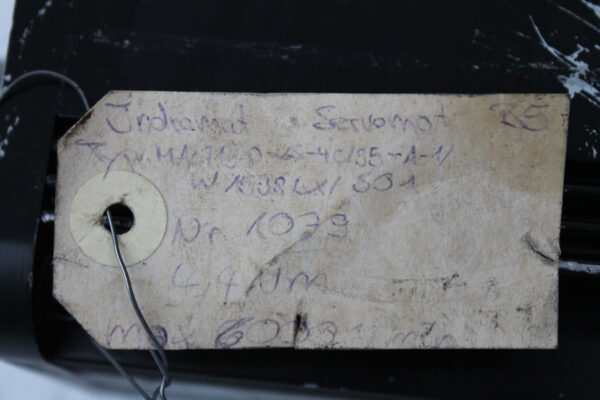 Indramat Servomot 25
Typ
W 1538 LX/ S01
Nr 1079
4,4 Nm
max 6000 1/min